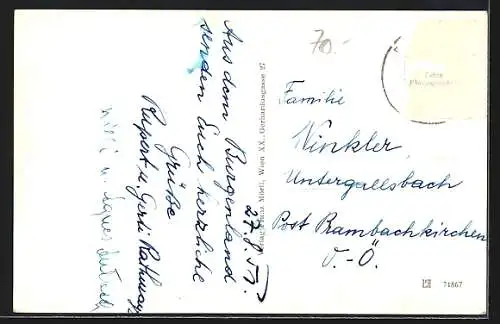 Aus dem Burgenland
senden Euch herzliche
Grüße
Rupert u. Gerti Rathmay
Willi u. Agnes
27.8.
Verlag Franz Mörtl, Wien XX., Gerhardusgasse 27
70.-
Familie
Winkler,
Untergallsbach
Post Prambachkirchen
O.-Ö.
71867